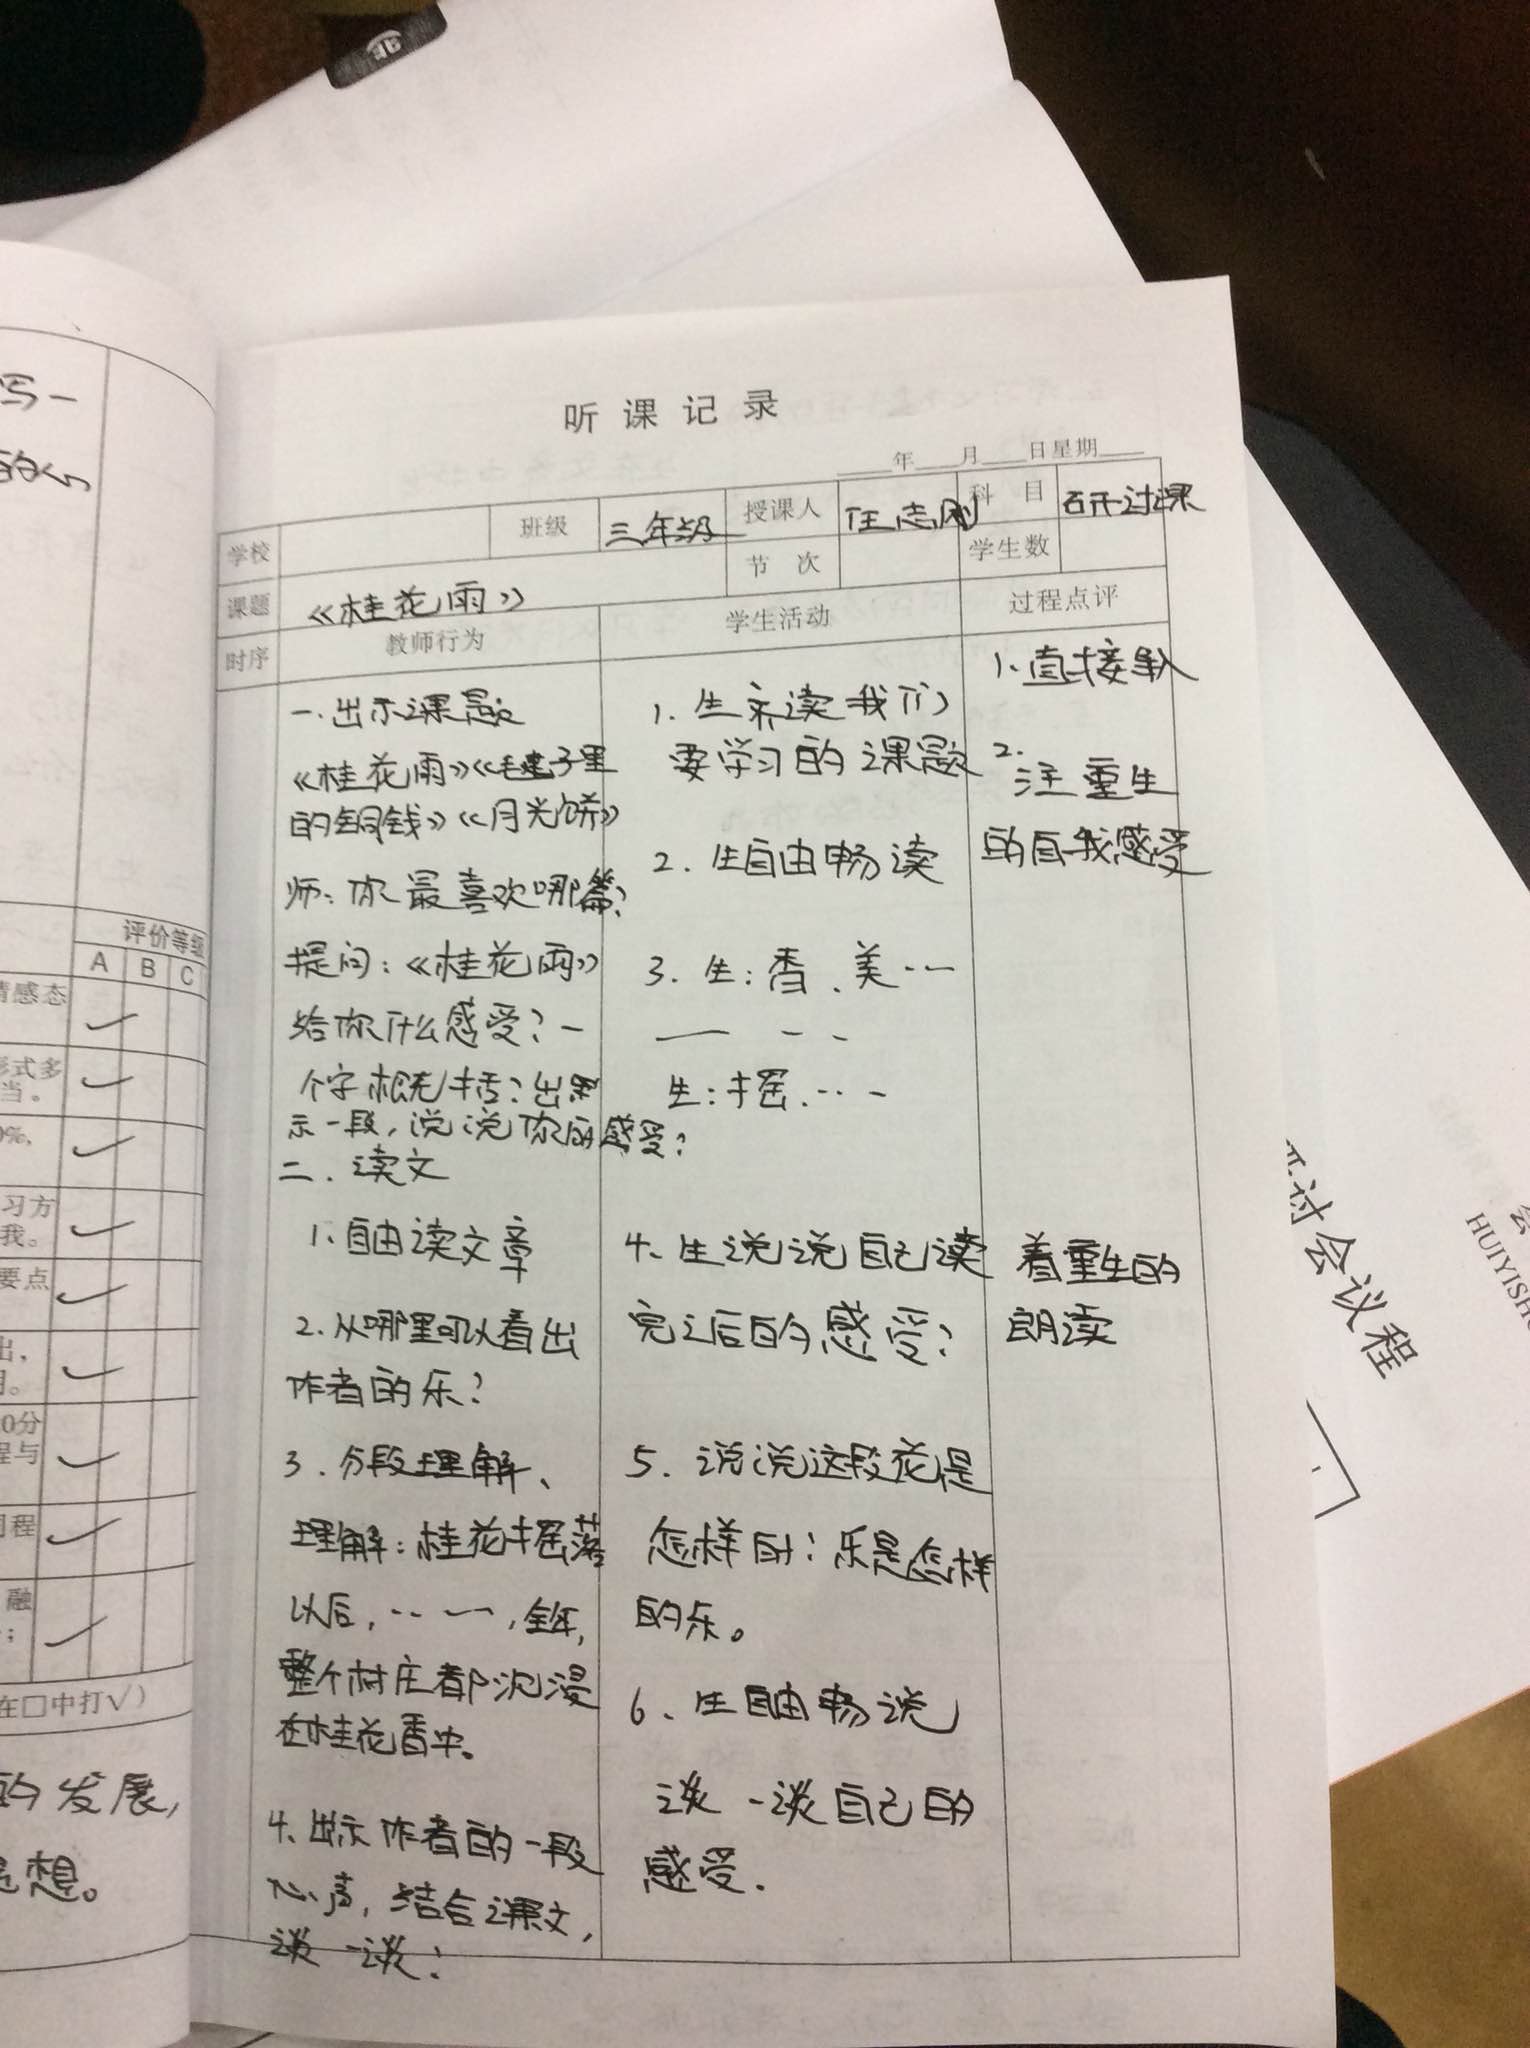 写一
的心
评价等级
A B C
情感态
形式多
当。
0%,
习方
我。
要点
出,
明。
0分
程与
同程
融
;
在□中打√)
的发展,
思想。
听课记录
年 月 日星期
学校 班级 三年级 授课人 任志刚 科目 研讨课
节次 学生数
课题 《桂花雨》
时序 教师行为 学生活动 过程点评
一.出示课题
《桂花雨》《毽子里
的铜钱》《月光饼》
师:你最喜欢哪篇?
提问:《桂花雨》
给你什么感受?一
个字概括?出
示一段,说说你的感受?
二.读文
1.自由读文章
2.从哪里可以看出
作者的乐?
3.分段理解、
理解:桂花摇落
以后,……,全年,
整个村庄都沉浸
在桂花香中。
4.出示作者的一段
心声,结合课文,
谈一谈!
1.生齐读我们
要学习的课题
2.生自由畅读
3.生:香、美……
生:摇……
4、生说说自己读
完之后的感受?
5.说说这段花是
怎样的?乐是怎样
的乐。
6、生自由畅说
谈一谈自己的
感受.
1.直接导入
2.注重生
的自我感受
着重生的
朗读
讨会议程
HUIYISH